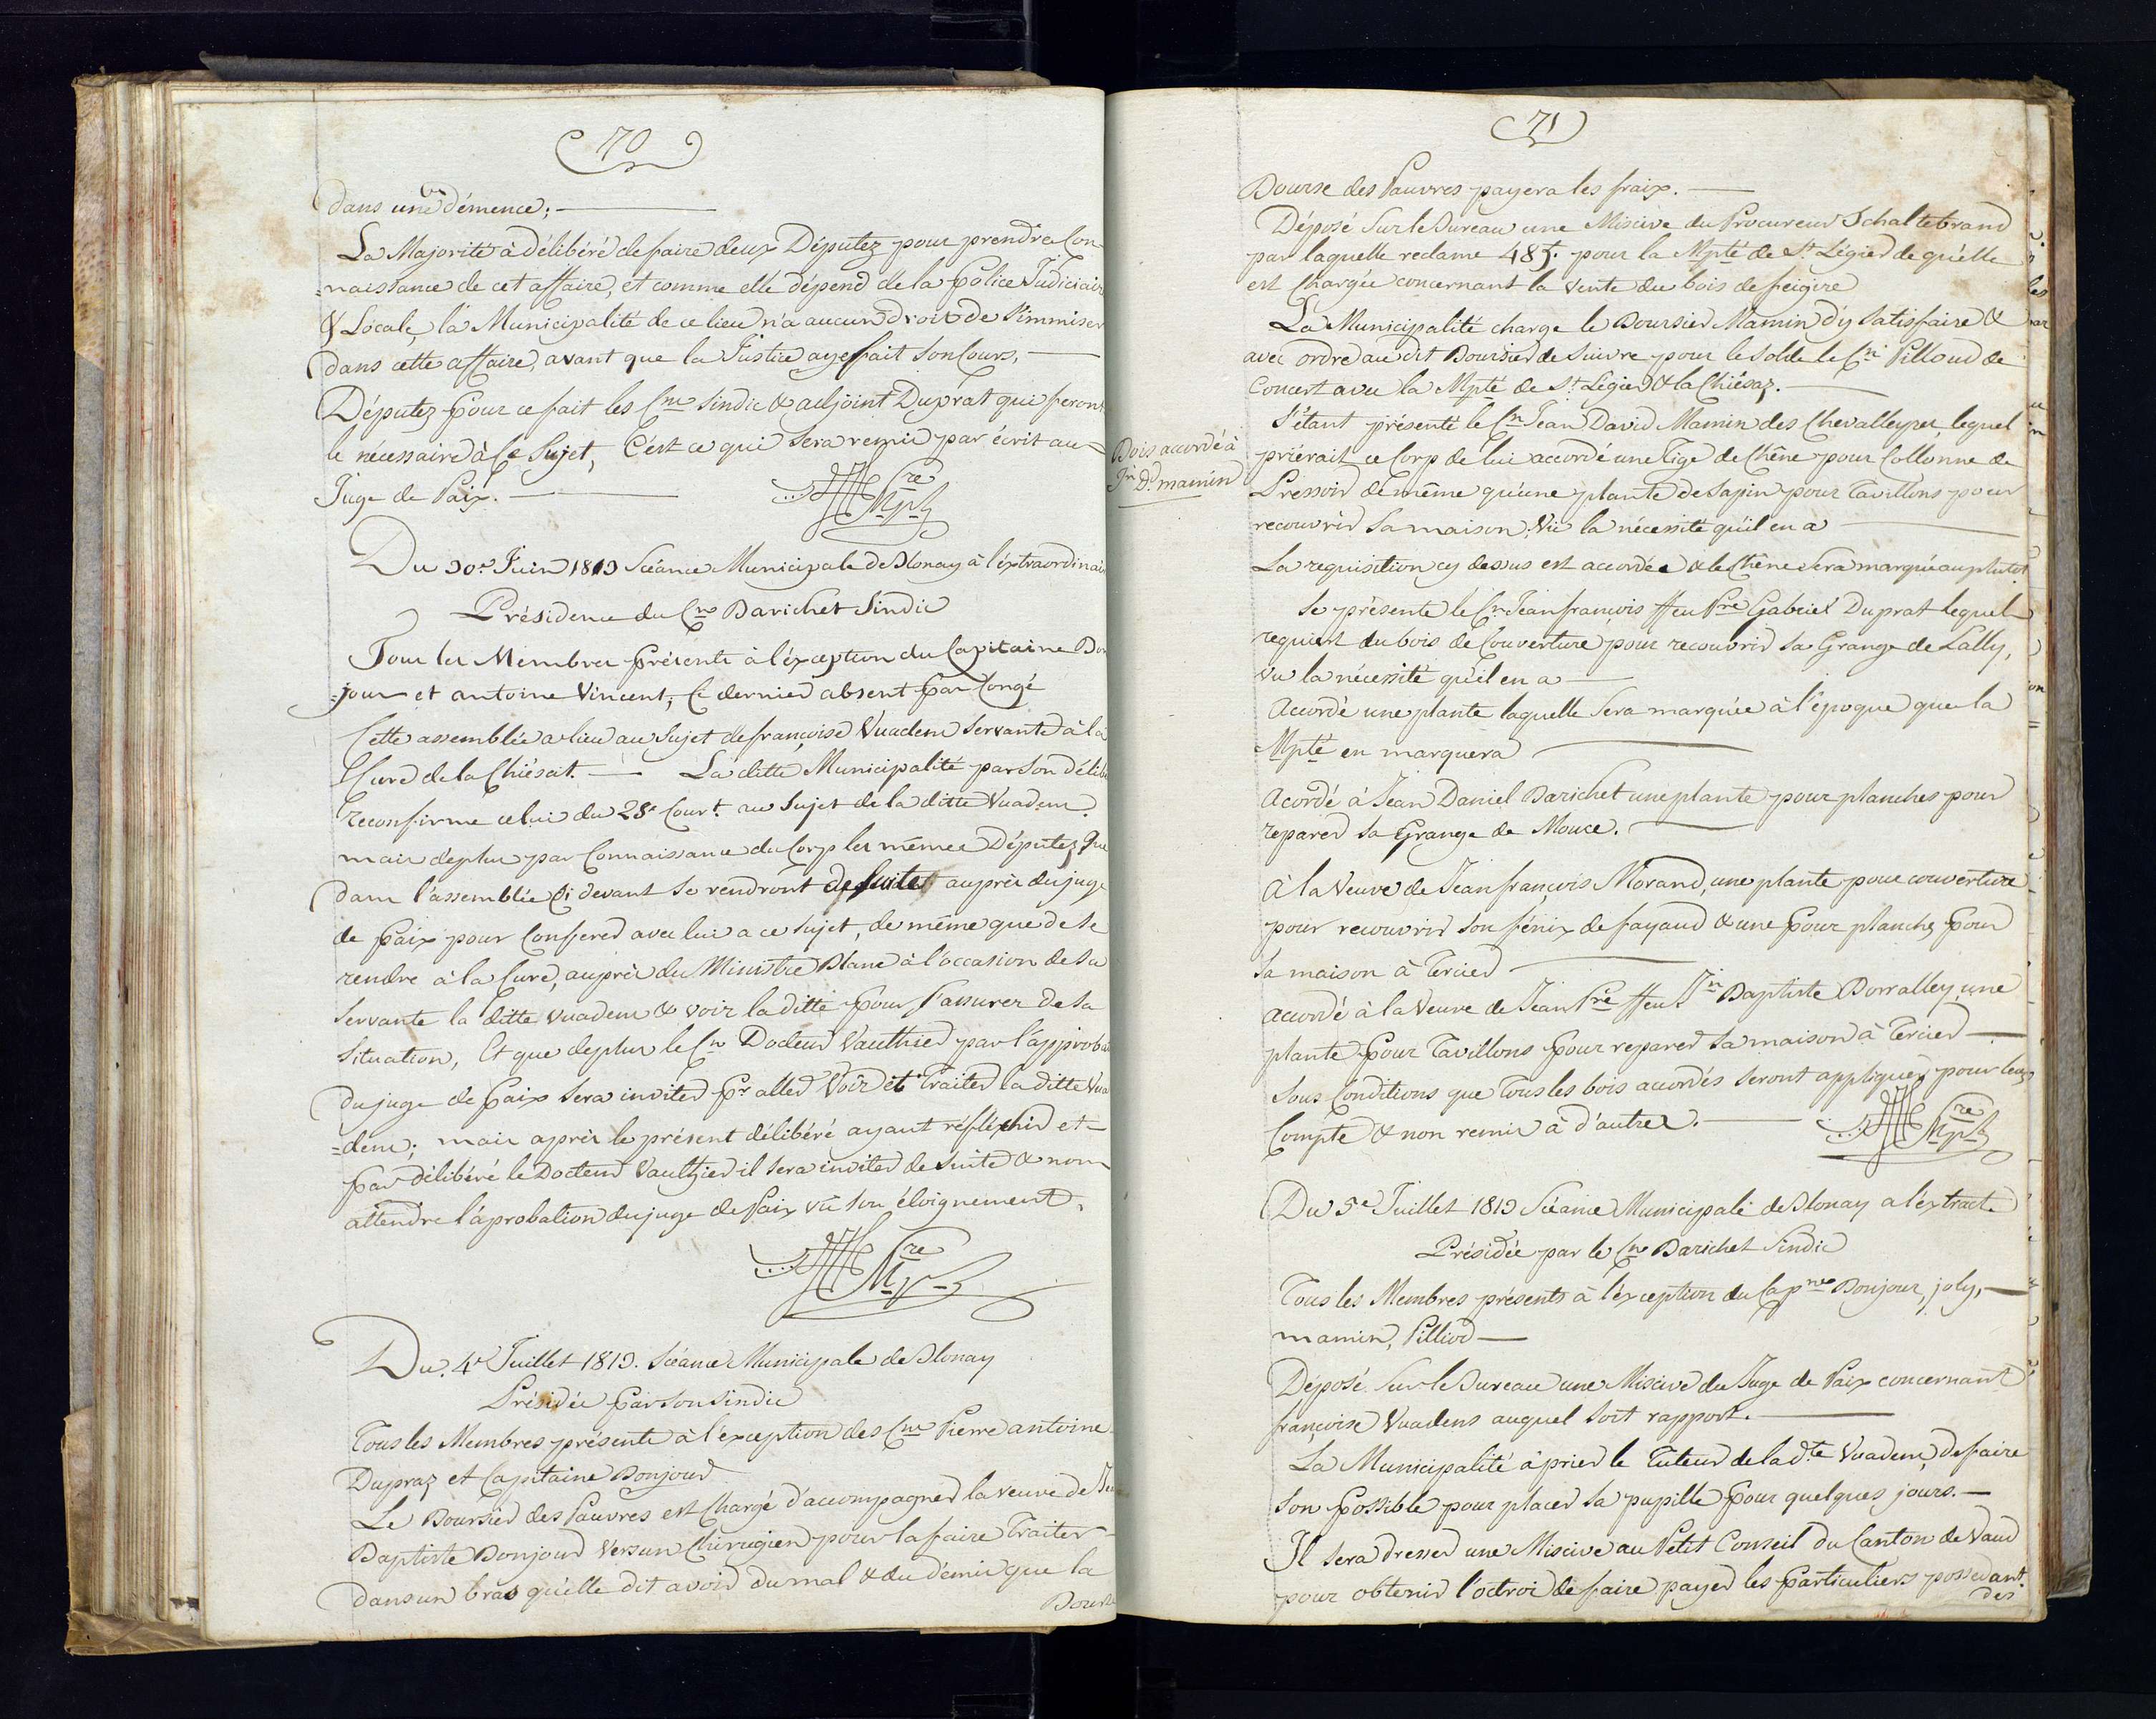 70
dans une démence;
La Majorité à délibéré de faire deux Députez pour prendre Con-
=naissance de cet affaire, et comme elle dépend de la police Judiciair
& Locale, la Municipalité de ce lieu n'a aucun droit de s'immiser
dans cette affaire, avant que la Justice aye fait son Cours,
Députez pour ce fait les Cns Sindic & adjoint Duprat qui feront
le nécessaire à ce Sujet, C'est ce qui sera remis par écrit au=
Juge de Paix.
Du 30e Juin 1819 Séance Municipale de Blonay à l'éxtraordinair
Présidence du Cn Barichet Sindic
Tous les Membres présents à l'éxception du Capitaine Bon
=jour et antoine Vincent, Ce dernier absent par Congé
Cette assemblée a lieu au Sujet de françoise Vuadens servante à la
Cure de la Chiésait. — La ditte Municipalité par son délibé
reconfirme celui du 28e Cour.t au Sujet de la ditte Vuadens
mais deplus par Connaissance du Corp les mêmes Députez que
dans l'assemblée Ci devant se rendront de suite auprès du juge
de paix pour Conferer avec lui a ce sujet, de même que de se
rendre à la Cure, auprès du Ministre Blanc à l'occasion de sa
servante la ditte Vuadens & voir la ditte pour s'assurer de sa
situation, Et que deplus le Cn Docteur Vauthier par l'approba
du juge de paix sera inviter pr aller Voir et Traiter la ditte Vua
=dens; mais après le présent délibéré ayant réfléchir et
par délibéré le Docteur Vauthier il sera inviter de suite & non
attendre l'áprobation du juge de Paix vû son éloignement.
Mpl
Du 4e Juillet 1819. Séance Municipale de Blonay
Présidée par son Sindic
Tous les Membres présents à l'éxception des Cns Pierre antoine
Dupraz et Capitaine Bonjour
Le Boursier des Pauvres est Chargé d'accompagner la veuve de Je
Baptiste Bonjour vers un Chirugien pour la faire Traiter
dans un bras qu'elle dit avoir du mal & du démis que la
Bourse
71
Bourse des Pauvres payera les fraix.
Déposé Sur le Bureau une Miscive du Procureur Schaltebrand
par laquelle reclame 48 f. pour la Mpté de St Légier de qu'elle
est Chargée concernant la vente du bois de feigire
La Municipalité charge le Boursier Mamin d'y satisfaire &
avec ordre au dit Boursier de suivre pour le solde le Cn Pilloud de
Concert avec la Mpté de St Légier & la Chiésaz.
Bois accordé à
Jn Dd mamin
S'étant présenté le Cn Jean David Mamin des Chevalleyres, lequel
priérait ce Corp de lui accordé une Tige de Chêne pour Collonne de
Pressoir de même qu'une plante de sapin pour Tavillons pour
recouvrir sa maison Vû la nécessité qu'il en a
La requisition cy dessus est accordée & le Chêne sera marquée au plutot
Se présente le Cn Jean françois ffeu Pre Gabriel Duprat lequel
requiert du bois de Couverture pour recouvrir sa Grange de Lally,
vu la nécessité qu'il en a
Accordé une plante laquelle sera marquée à l'époque que la
Mpté en marquera
Acordé à Jean Daniel Barichet une plante pour planches pour
reparer sa Grange de Mouce.
à la Veuve de Jean françois Morand, une plante pour couverture
pour recouvrir son fénix de fayaud & une pour planches pour
sa maison à Tercier
accordé à la Veuve de Jean Pre ffeu Jn Baptiste Borralley, une
plante pour Tavillons pour reparer sa maison à Tercier
sous Conditions que Tous les bois accordés seront appliqués pour leur
Compte & non remis à d'autres.
Mpl
Du 5e Juillet 1819 Séance Municipale de Blonay a l'éxtract.
Présidée par le Cn Barichet Sindic
Tous les Membres présents à l'éxception du Capne Bonjour, joly,
mamin, Pilliod
Déposé Sur le Bureau une Miscive du Juge de Paix concernant
françoise Vuadens auquel soit rapport.
La Municipalité à prier le Tuteur de la dte Vuadens, de faire
son possible pour placer sa pupille pour quelques jours.
Il sera dresser une Miscive au Petit Conseil du Canton de Vaud
pour obtenir l'octroi de faire payer les particuliers possedant.
des